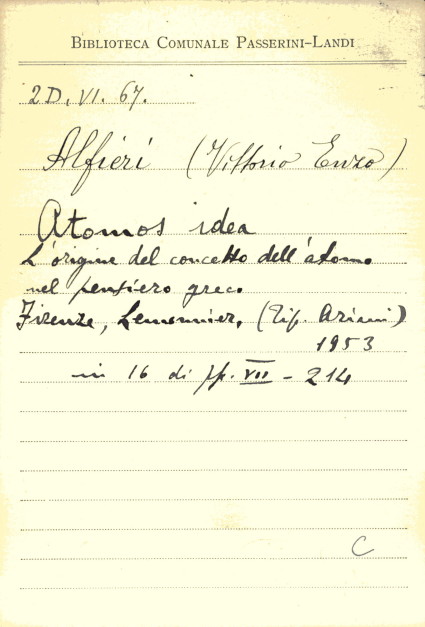 BIBLIOTECA COMUNALE PASSERINI-LANDI
2D. VI. 67.
Alfieri (Vittorio Enzo)
Atomos idea
L'origine del concetto dell'atomo
nel pensiero greco
Firenze, Lemonnier, (Tip. Ariani)
1953
in 16 di pp. VII - 214
C